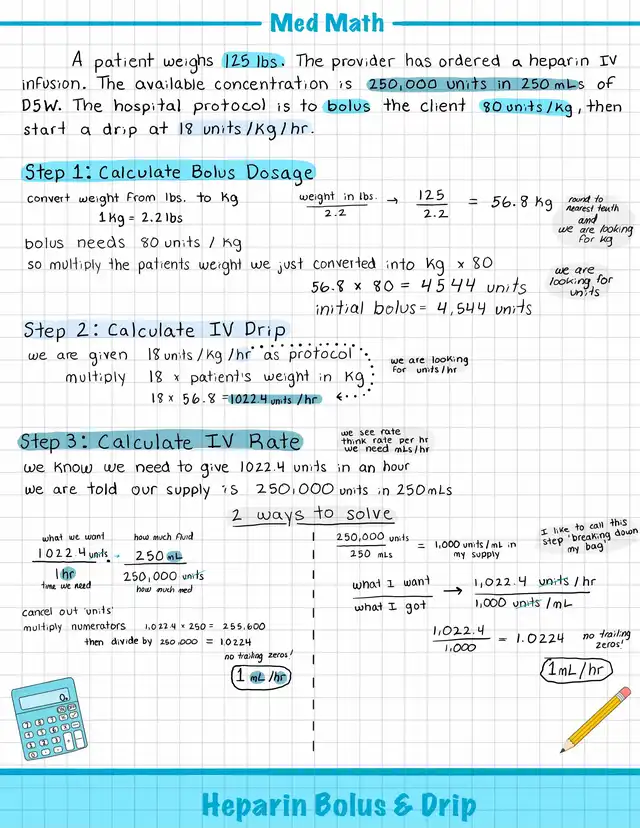 Med Math
A patient weighs 125 lbs. The provider has ordered a heparin IV
infusion. The available concentration is 250,000 units in 250 mLs of
D5W. The hospital protocol is to bolus the client 80 units/kg, then
start a drip at 18 units/kg/hr.
Step 1: Calculate Bolus Dosage
convert weight from lbs. to kg
1 kg = 2.2 lbs
weight in lbs. / 2.2 → 125 / 2.2 = 56.8 kg
round to
nearest tenth
and
we are looking
for kg
bolus needs 80 units / kg
so multiply the patients weight we just converted into kg x 80
56.8 x 80 = 4544 units
initial bolus = 4,544 units
we are
looking for
units
Step 2: Calculate IV Drip
we are given 18 units/kg/hr as protocol
multiply 18 x patient's weight in kg
18 x 56.8 = 1022.4 units/hr
we are looking
for units/hr
Step 3: Calculate IV Rate
we see rate
think rate per hr
we need mLs/hr
we know we need to give 1022.4 units in an hour
we are told our supply is 250,000 units in 250 mLs
2 ways to solve
what we want how much fluid
1022.4 units · 250 mL
1 hr 250,000 units
time we need how much med
cancel out 'units'
multiply numerators 1,022.4 x 250 = 255,600
then divide by 250,000 = 1.0224
no trailing zeros!
1 mL/hr
250,000 units / 250 mLs = 1,000 units/mL in
my supply
I like to call this
step 'breaking down
my bag'
what I want → 1,022.4 units/hr
what I got 1,000 units/mL
1,022.4 / 1,000 = 1.0224
no trailing
zeros!
1 mL/hr
0.
Heparin Bolus & Drip